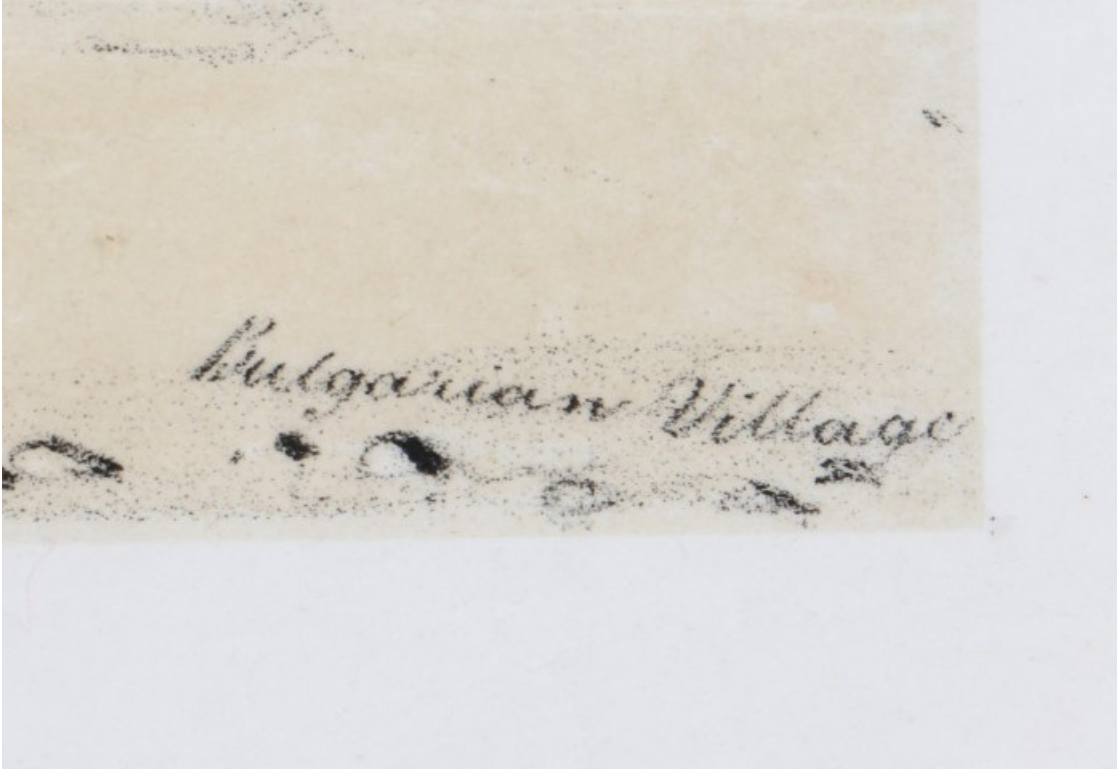 Bulgarian Village